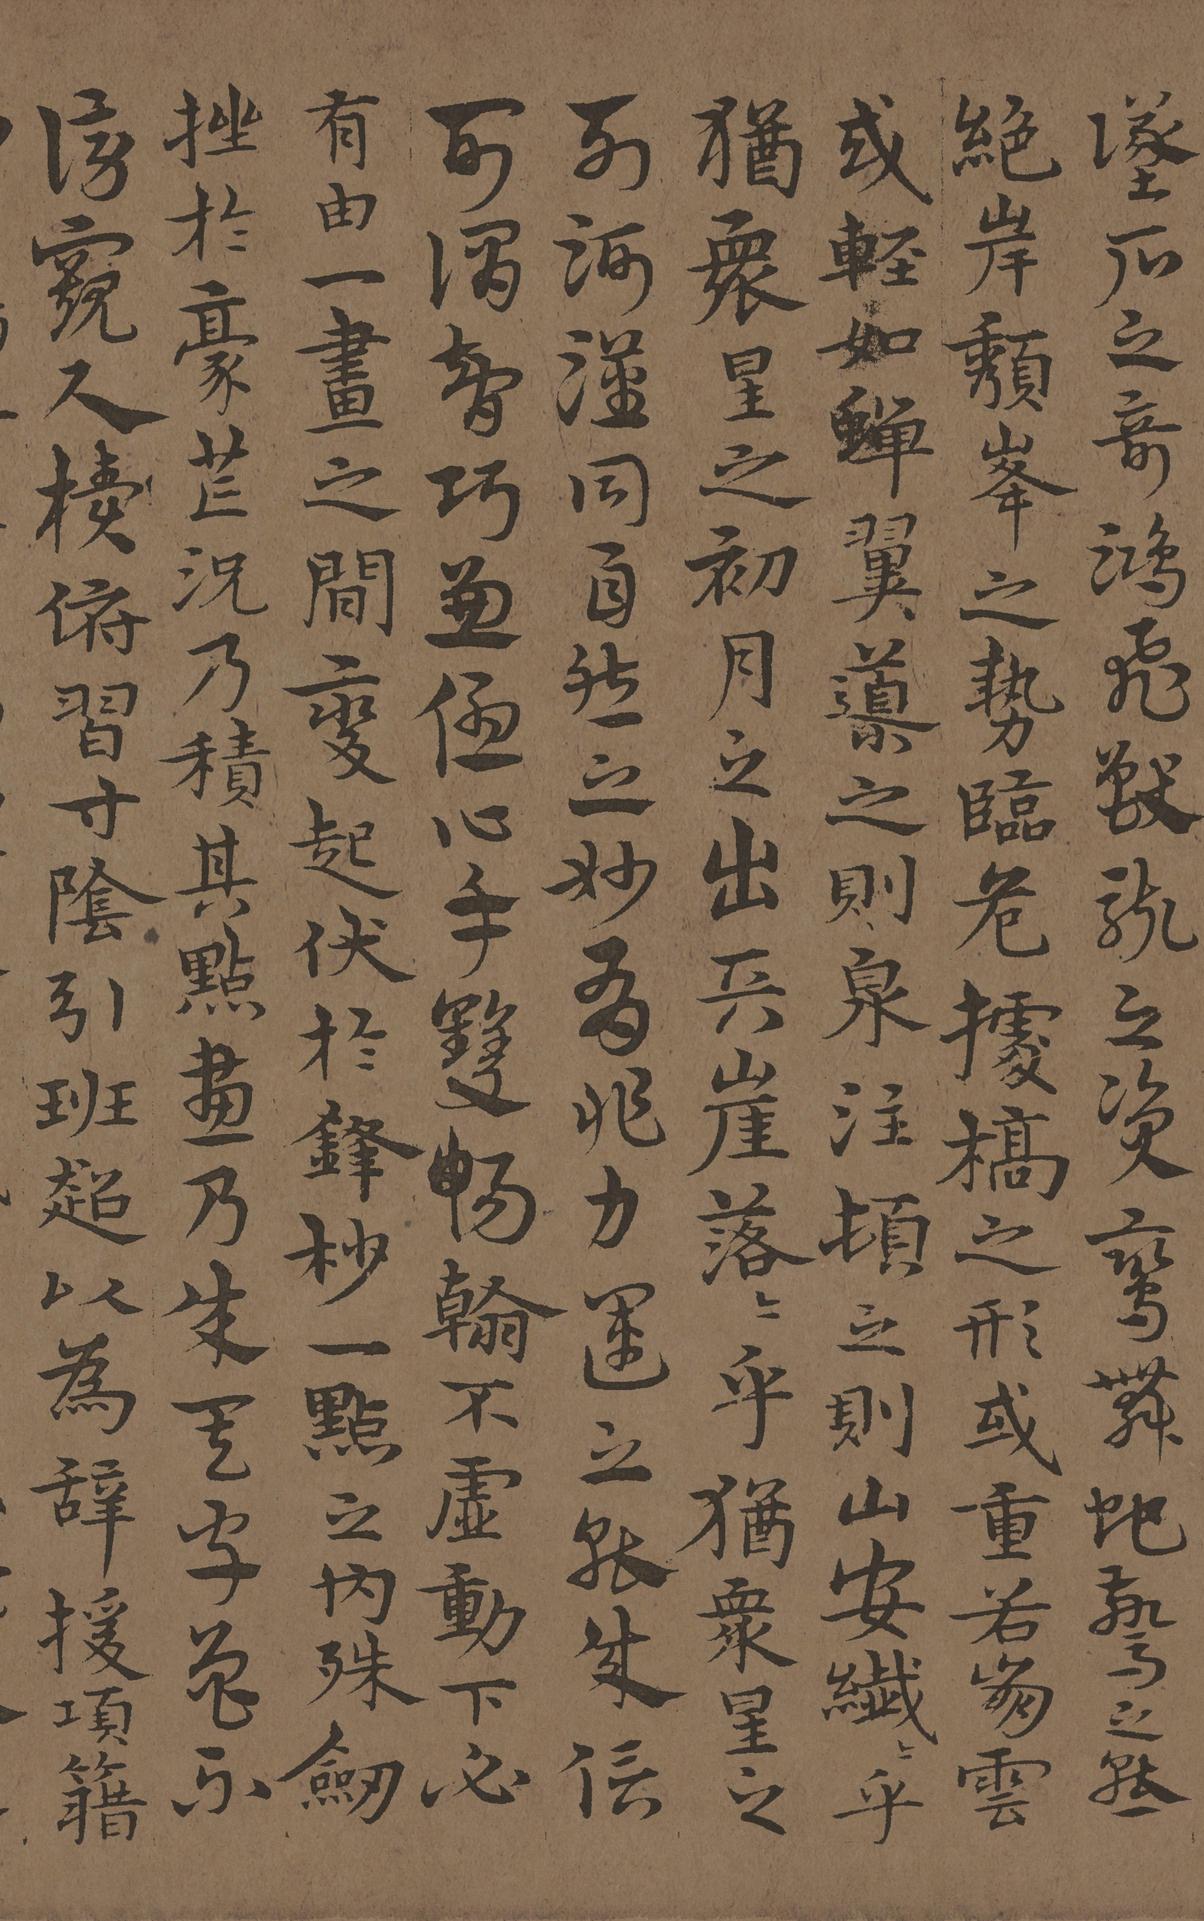 墜石之奇鴻飛獸駭之資鸞舞蛇驚之態
絕岸頹峯之勢臨危據槁之形或重若崩雲
或輕如蟬翼導之則泉注頓之則山安纖〻乎
猶眾星之初月之出天崖落〻乎猶眾星之
列河漢同自然之妙有非力運之能成信
可謂智巧兼優心手雙暢翰不虛動下必
有由一畫之間變起伏於鋒杪一點之內殊衂
挫於豪芒況乃積其點畫乃成其字曾不
傍窺尺牘俯習寸陰引班超以為辭援項籍